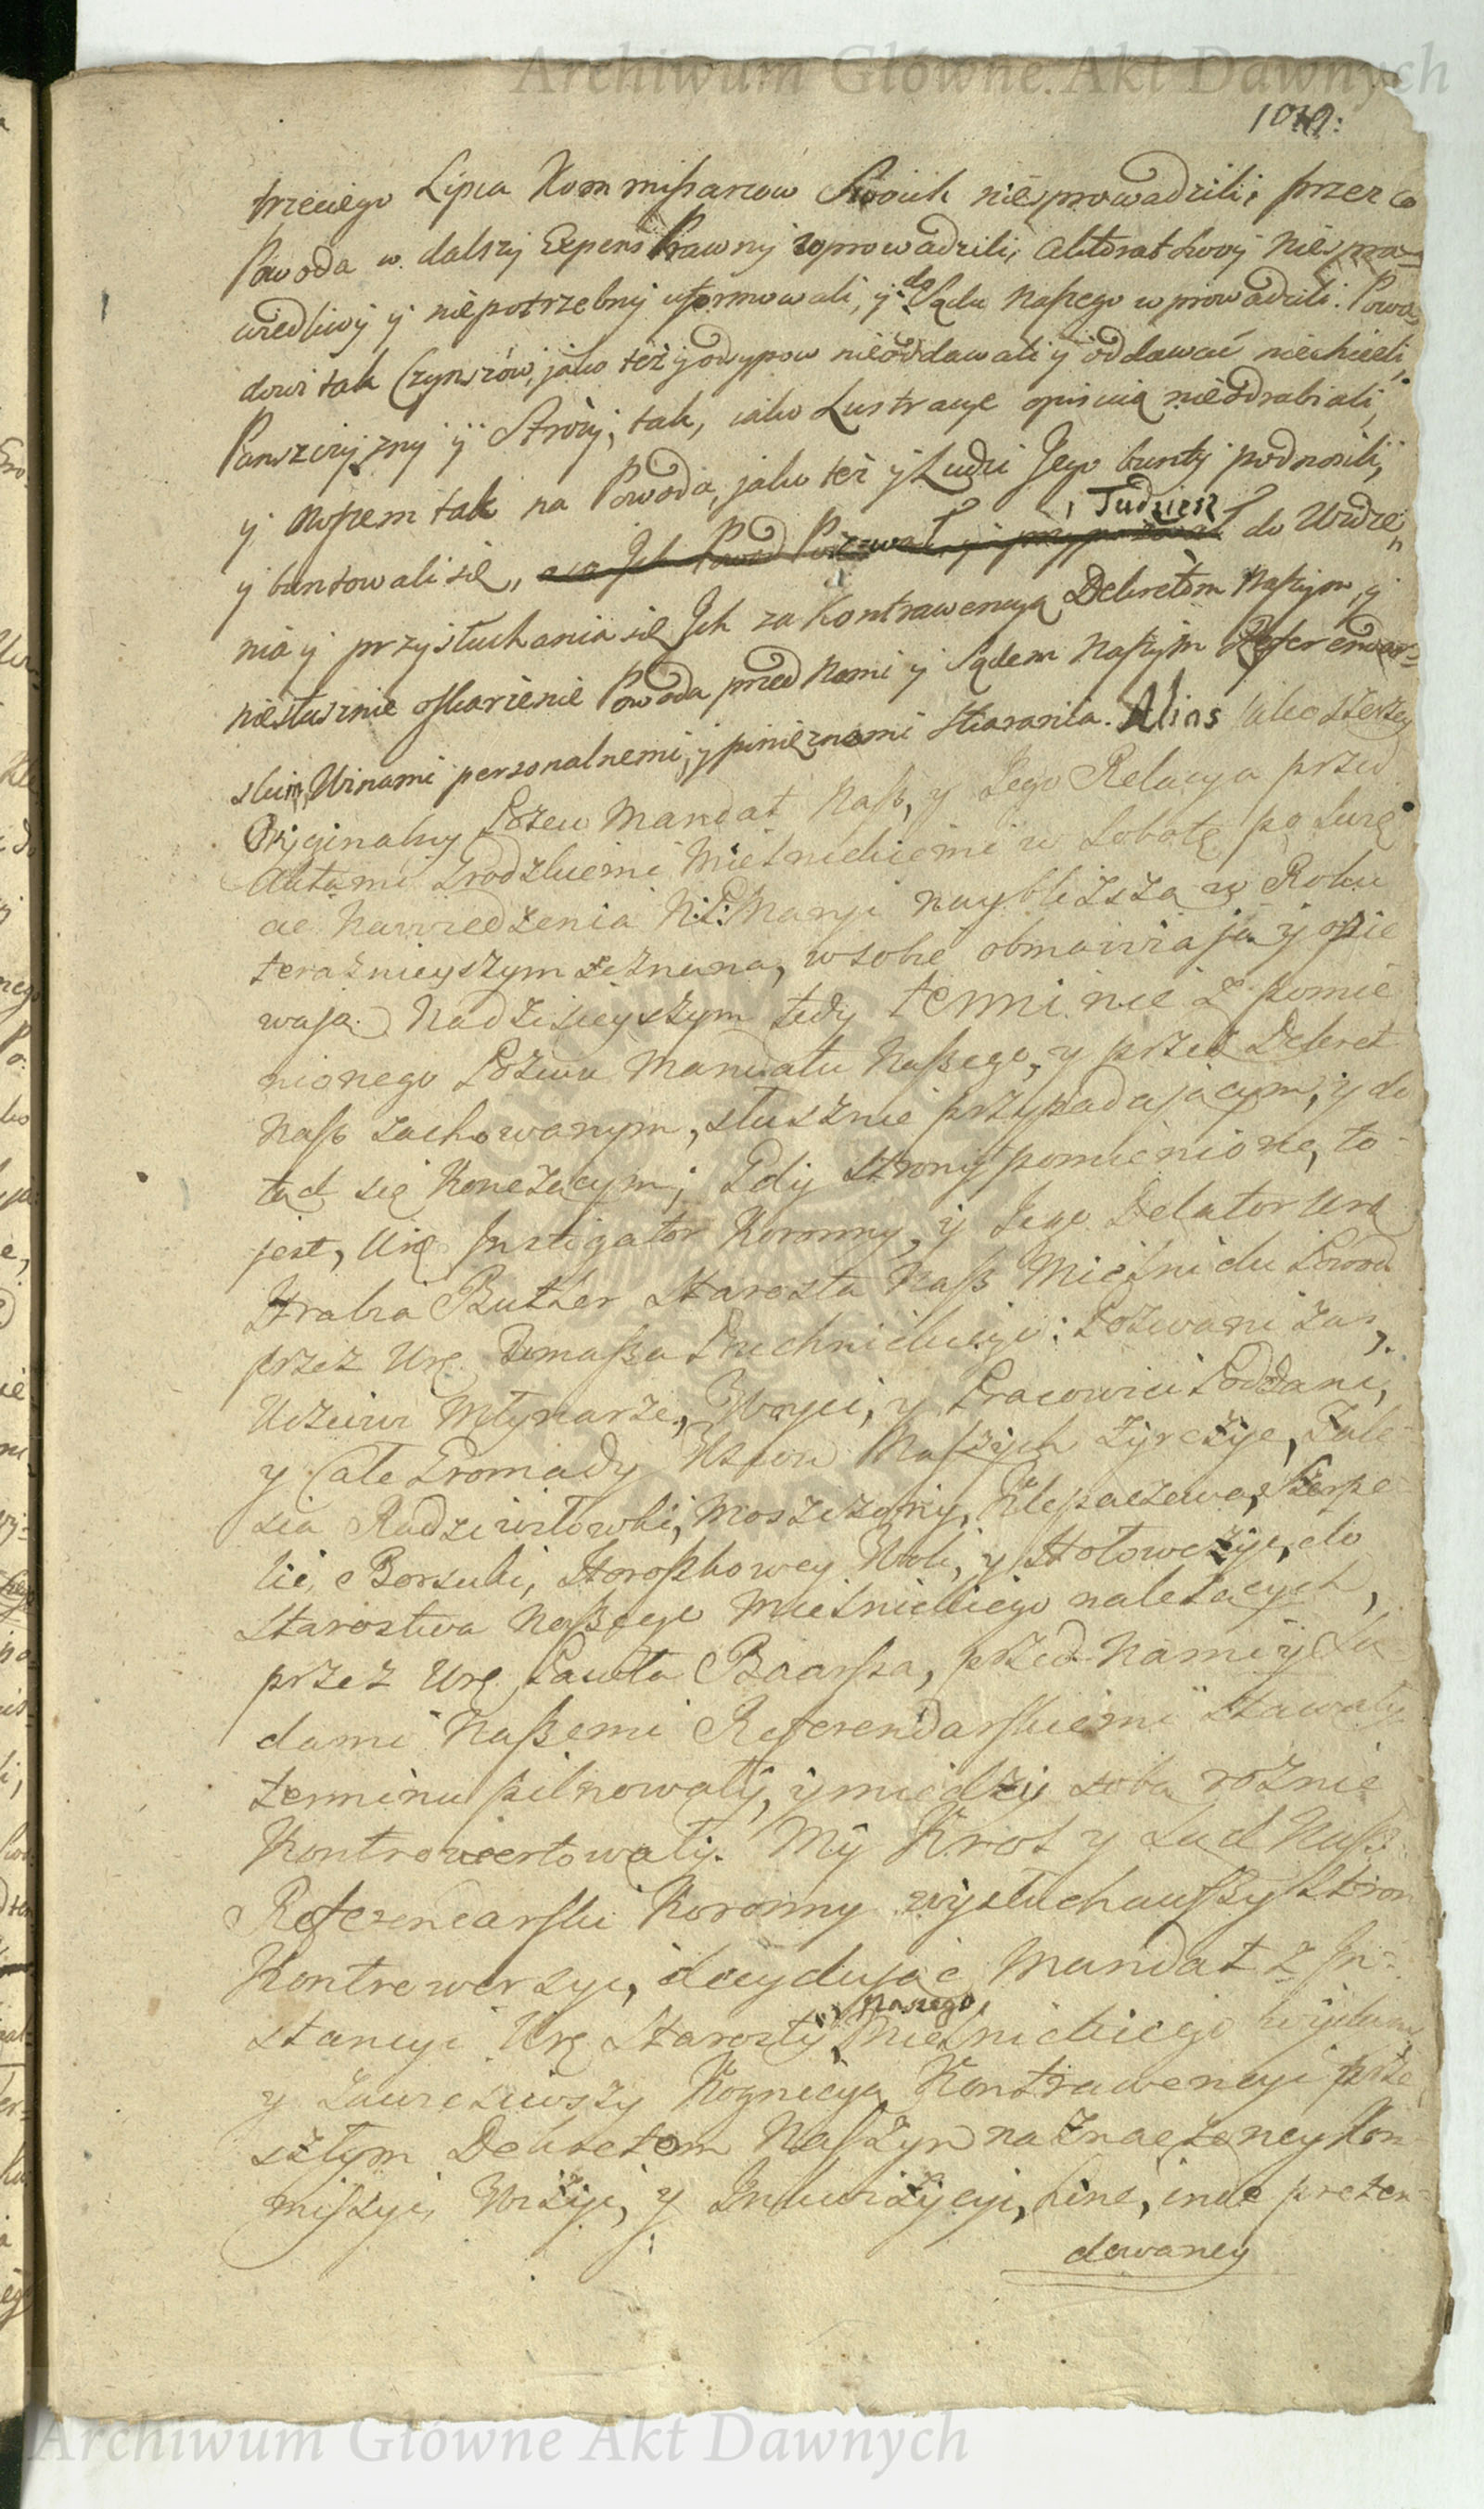 Archiwum Główne Akt Dawnych
trzeciego Lipca Kommissarzow Swoich nie sprowadzili, przez co
Powoda w dalszy Expens Prawny wprowadzili, Aktorat Swoy nie spra=
wiedliwy y niepotrzebny uformowali, y do Sądu Naszego wprowadzili. Powo=
dowi tak Czynszow, jako też y odsypow nieoddawali y oddawać niechcieli,
Panszczyzny y Strozy, tak, iako Lustracye opisuią nieodrabiali,
y owszem tak na Powoda, jako też y Ludzi Jego bunty podnosili,
y buntowali się, Tudziesz do Widze=
nia y przysłuchania się Ich za Kontrawencyą Dekretom Naszym, y
niesłusznie oskarżenie Powoda przed Nami y Sądem Naszym Referendar=
skim, Winami personalnemi, y pinięznemi skarania. Alias iako szerzey
Oryginalny Pozew Mandat Nasz, y Jego Relacya przed
Aktami Grodzkiemi Mielnickiemi w Sobotę po Swię
cie Nawiedzenia N: P: Maryi naybliższą w Roku
teraznieyszym zeznana, w sobie obmawiaią y opie
waią. Na dzisieyszym tedy terminie z pomie
nionego Pozwu Mandatu Naszego, y przez Dekret
Nasz zachowanym, słusznie przypadaiącym, y do
tąd się Konczącym; Gdy strony pomienione, to
jest, Urg Instigator Koronny, y Jego Delator Urg
Hrabia Butler Starosta Nasz Mielnicki Powod
przez Urg Tomasza Suchnickiego: Pozwani zas,
Uczciwi Młynarze, Woyci, y Pracowici Poddani,
y Całe Gromady Wsiow Naszych Zyrczyc, Zale
sia Radziwiłowki, Moszczony, Klepaczewa, Sterpe
lic, Borsuki, Horoszkowey Woli, y Hołowczyc, do
Starostwa Naszego Mielnickiego należących,
przez Urg Pawła Baarssa, przed Nami y Są
dami Naszemi Referendarskiemi stawały
terminu pilnowały, y między sobą roznie
Kontrowertowały. My Krol y Sąd Nasz
Referendarski Koronny wysłuchawszy stron
Kontrowersyi, decyduiąc Mandat z In=
stancyi Urg Starosty Naszego Mielnickiego wydany
y zawiesiwszy Kognicyą Kontrawencyi prze
szłym Dekretom Naszym naznaczoney Kom
missyi, Wizyi, y Inkwizycyi, hinc, inde preten=
dowaney
Archiwum Główne Akt Dawnych